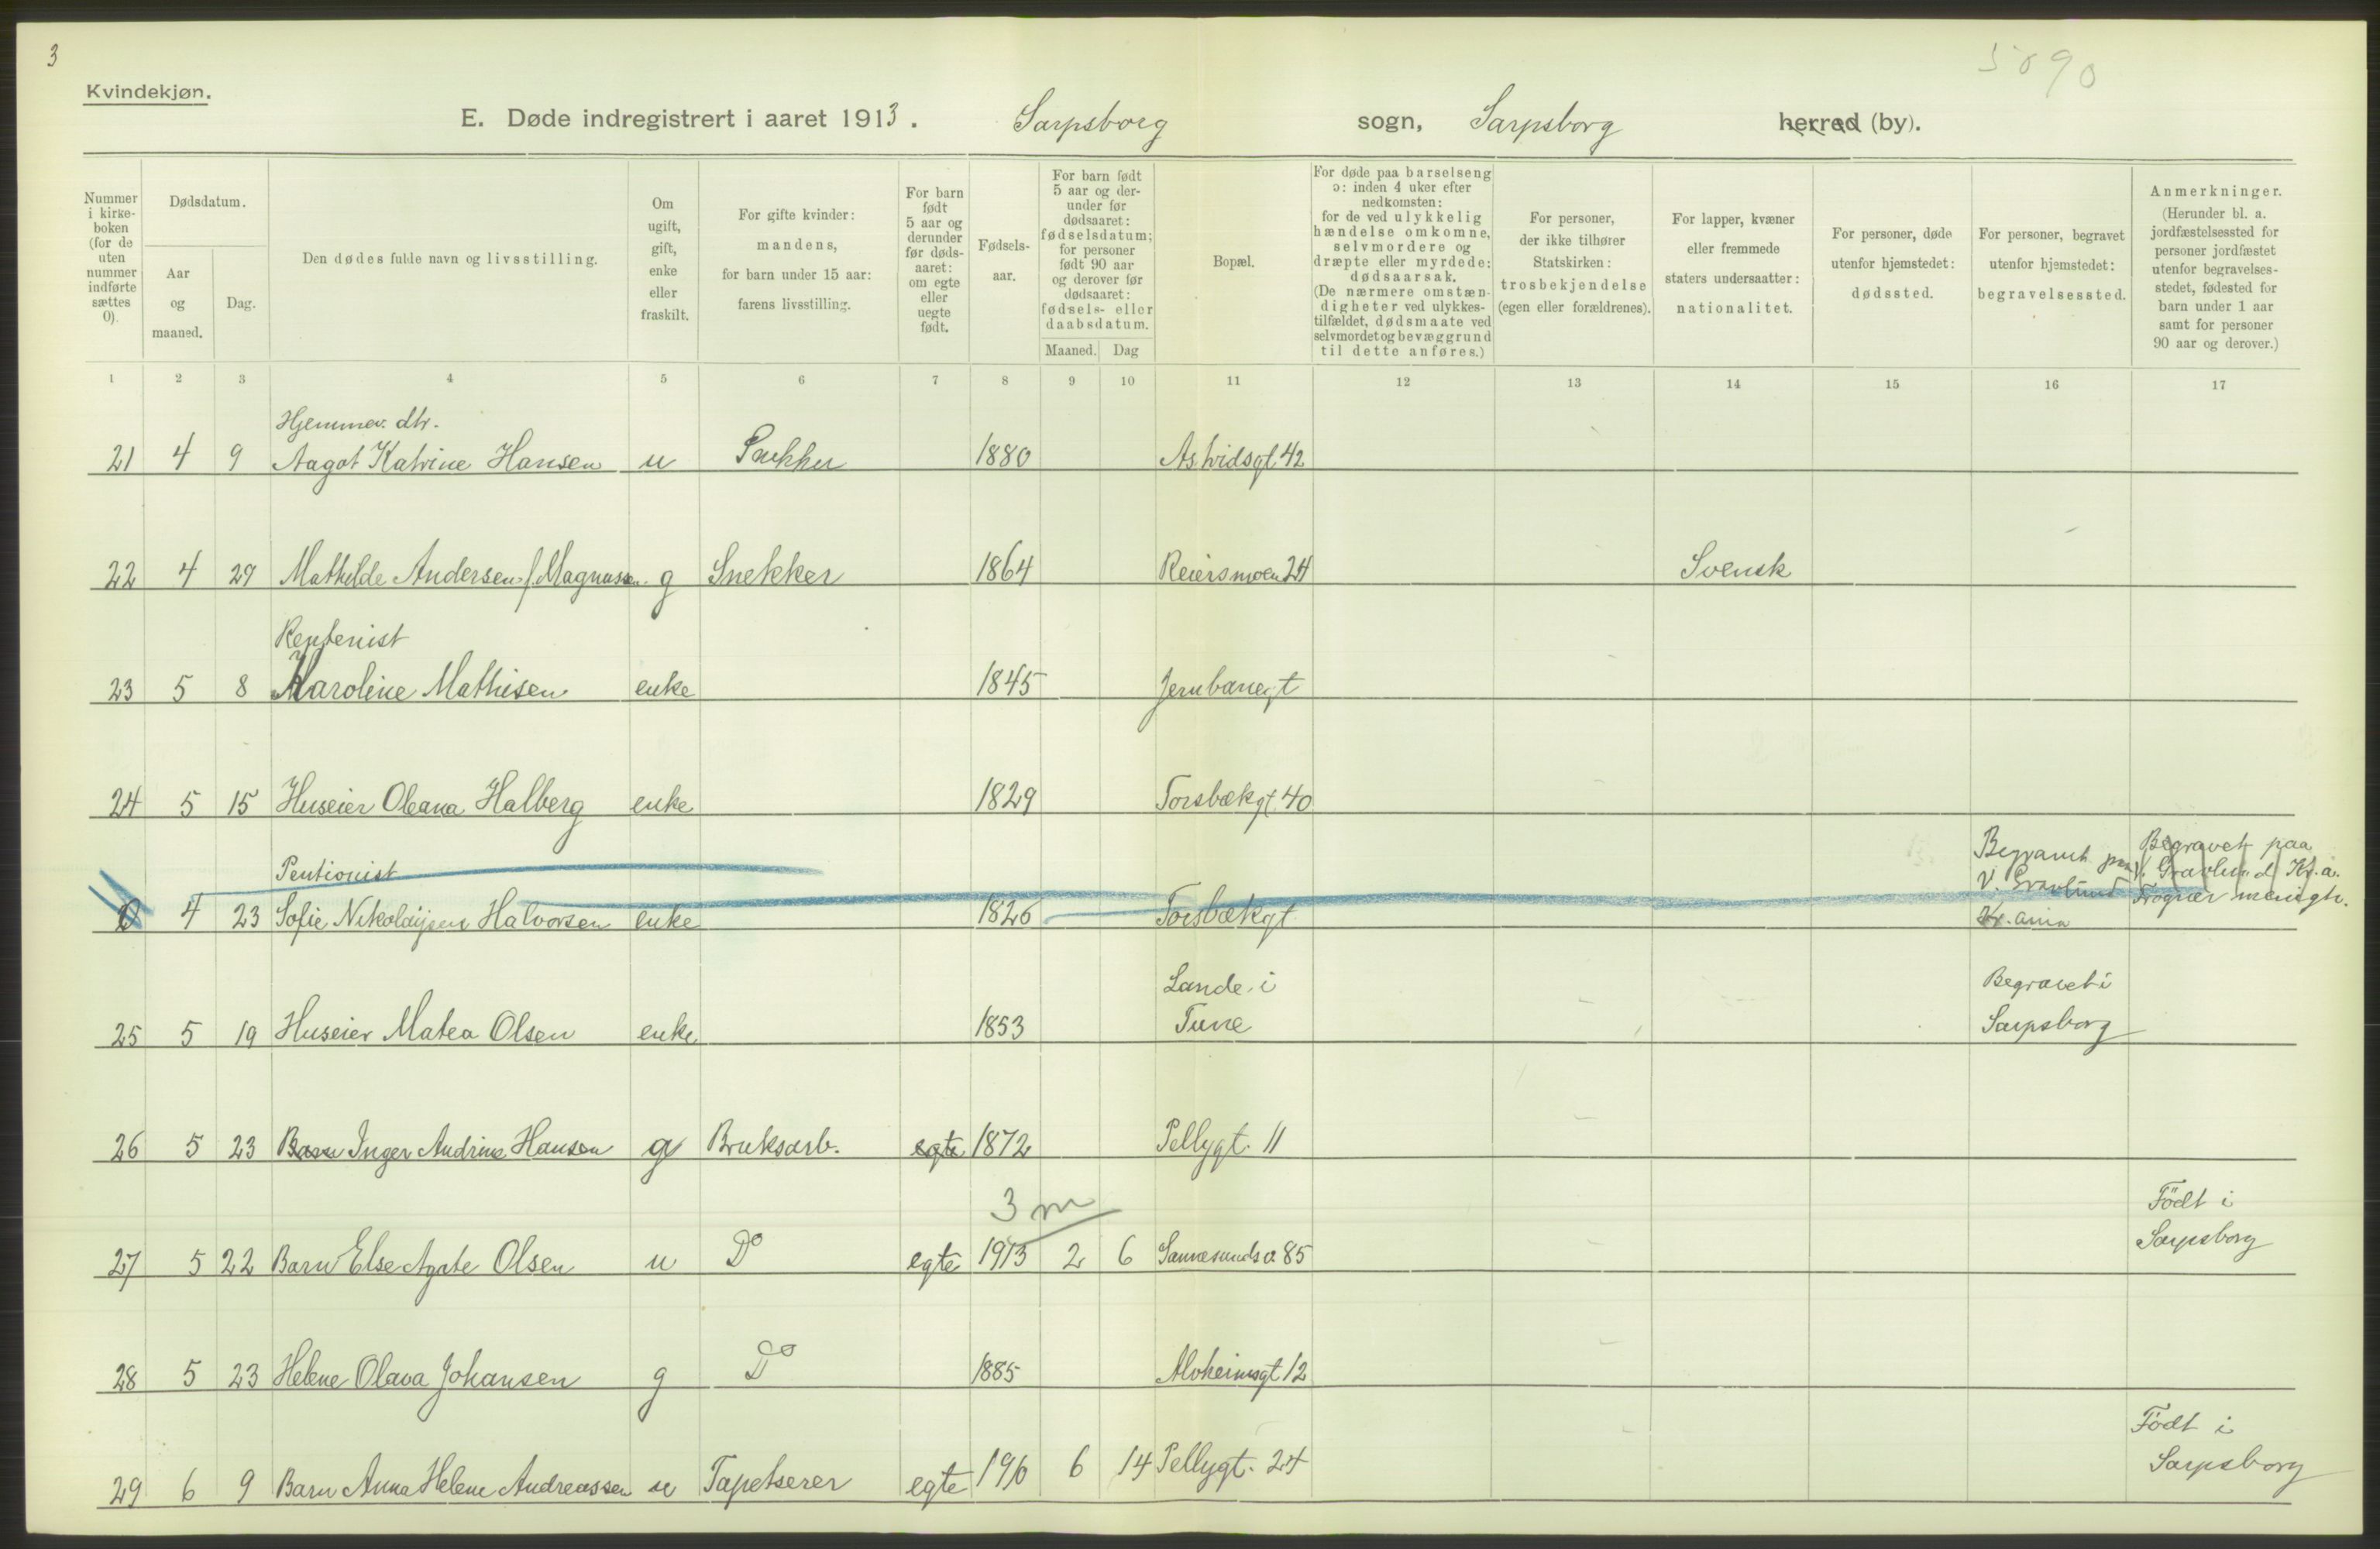 3
5090
Kvindekjøn.
E. Døde indregistrert i aaret 1913. Sarpsborg sogn, Sarpsborg herred (by).
Nummer i kirke-boken (for de uten nummer indførte sættes 0).
Dødsdatum.
Aar og maaned.
Dag.
Den dødes fulde navn og livsstilling.
Om ugift, gift, enke eller fraskilt.
For gifte kvinder: mandens, for barn under 15 aar: farens livsstilling.
For barn født 5 aar og derunder før døds-aaret: om egte eller uegte født.
Fødsels-aar.
For barn født 5 aar og der-under før dødsaaret: fødselsdatum; for personer født 90 aar og derover før dødsaaret: fødsels- eller daabsdatum.
Maaned. Dag
Bopæl.
For døde paa barselseng ɔ: inden 4 uker efter nedkomsten: for de ved ulykkelig hændelse omkomne, selvmordere og dræpte eller myrdede: dødsaarsak. (De nærmere omstæn-digheter ved ulykkes-tilfældet, dødsmaate ved selvmordet og bevæggrund til dette anføres.)
For personer, der ikke tilhører Statskirken: trosbekjendelse (egen eller forældrenes).
For lapper, kvæner eller fremmede staters undersaatter: nationalitet.
For personer, døde utenfor hjemstedet: dødssted.
For personer, begravet utenfor hjemstedet: begravelsessted.
Anmerkninger. (Herunder bl. a. jordfæstelsessted for personer jordfæstet utenfor begravelses-stedet, fødested for barn under 1 aar samt for personer 90 aar og derover.)
1 2 3 4 5 6 7 8 9 10 11 12 13 14 15 16 17
Hjemmev. dtr.
21 4 9 Aagot Katrine Hansen u 1880 42
22 4 29 Mathilde Andersen f. Magnussen g Snekker 1864 Reiersmoen 24 Svensk
Rentenist
23 5 8 Karoline Mathisen enke 1845 Jernbanegt
24 5 15 Huseier Oleana Halberg enke 1829 Torsbækgt. 40
Pentionist
0 4 23 Sofie Nikolaijsen Halvorsen enke 1826 Torsbækgt.
Begravet paa V. Gravlund Kr.ania
Begravet paa V. Gravlund Kr.a. Frogner menigh.
Lande i Begravet i
25 5 19 Huseier Matea Olsen enke 1853 Tune Sarpsborg
26 5 23 Barn Inger Andrine Hansen g Bruksarb. egte 1872 Pellygt. 11
3 m Födt i
27 5 22 Barn Else Agate Olsen u Do egte 1913 2 6 Sannesundsv. 85 Sarpsborg
28 5 23 Helene Olava Johansen g Do 1885 Alvheimsgt 12
Födt i
29 6 9 Barn Anna Helene Andreassen u Tapetserer egte 6 14 Pellygt. 24 Sarpsborg